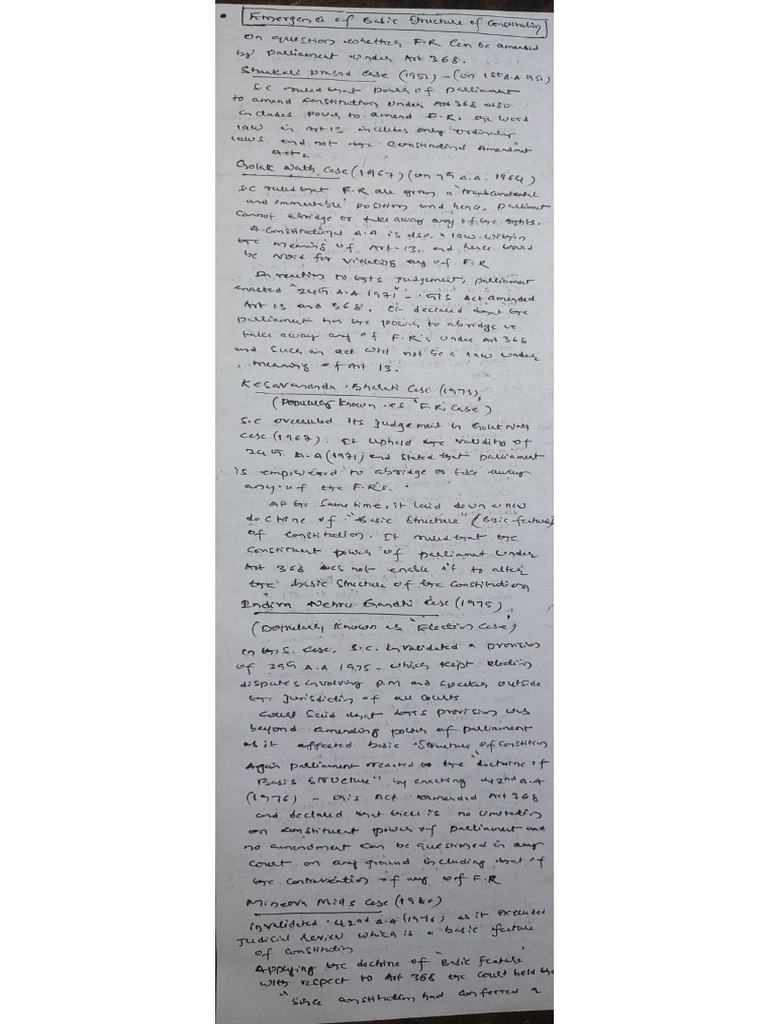 Emergence of Basic Structure of Constitution
On question whether F.R Can be amended
by Parliament under Art 368.
Shankari Prasad Case (1951) - (on 1st A.A 1951)
S.C ruled that power of Parliament
to amend Constitution under Art 368 also
includes power to amend F.R. The word
law in Art 13 includes only ordinary
laws and not the Constitutional Amendment
Acts.
Golak Nath Case (1967) (on 17th A.A. 1964)
S.C ruled that F.R are given a "transcendental
and immutable" position and hence, Parliament
Cannot abridge or take away any of the rights.
A Constitutional A.A is also a law within
the meaning of Art-13. and hence would
be void for violating any of F.R
In reaction to this judgement, Parliament
enacted "24th A.A 1971" - This Act amended
Art 13 and 368. It declared that the
Parliament has the power to abridge or
take away any of F.R's under Art 368
and such an act will not be a law under
meaning of Art 13.
Kesavananda Bharati Case (1973)
(Popularly known as "F.R's Case")
S.C overruled its judgement in Golak Nath
case (1967). It upheld the validity of
24th A.A (1971) and stated that Parliament
is empowered to abridge or take away
any of the F.R's.
At the same time, it laid down a new
doctrine of "Basic Structure" (Basic feature)
of constitution. It ruled that the
constituent power of Parliament under
Art 368 does not enable it to alter
the basic structure of the Constitution
Indira Nehru Gandhi Case (1975)
(Popularly known as "Election Case")
In this case, S.C. invalidated a provision
of 39th A.A 1975 - which kept election
disputes involving P.M and Speaker outside
the Jurisdiction of all courts
Court said that this provision was
beyond amending power of Parliament
as it affected basic structure of Constitution
Again Parliament reacted to the "doctrine of
Basic Structure" by enacting 42nd A.A
(1976) - This Act amended Art 368
and declared that there is no limitation
on constituent power of Parliament and
no amendment can be questioned in any
court on any ground including that of
the contravention of any of F.R
Minerva Mills Case (1980)
Invalidated 42nd A.A (1976) as it excluded
Judicial review which is a basic feature
of Constitution
Applying the doctrine of "Basic feature"
with respect to Art 368 the Court held that
"Since Constitution had conferred a